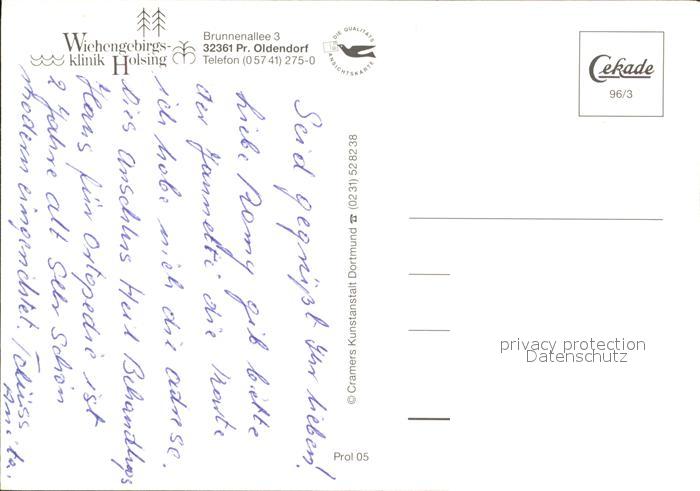 Wiehengebirgs-
klinik Holsing
Brunnenallee 3
32361 Pr. Oldendorf
Telefon (0 57 41) 275-0
DIE QUALITÄTS
ANSICHTSKARTE
Cekade
96/3
Seid gegrüßt Ihr lieben!
Liebe Romy gib bitte
der Jannette die Karte
ich habe nich die adresse.
Dies Anschluss Heil Behandlugs
Haus für Ortopedie ist
2 Jahre alt Sehr Schön
modern eingerichtet. Tschüss
Anita.
© Cramers Kunstanstalt Dortmund ☎ (02 31) 52 82 38
Prol 05
privacy protection
Datenschutz